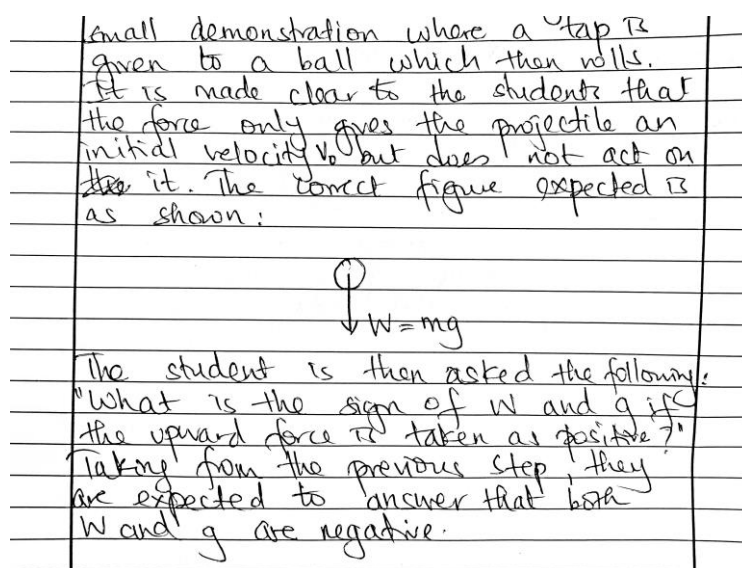 small demonstration where a "tap is
given to a ball which then rolls.
It is made clear to the students that
the force only gives the projectile an
initial velocity V₀ but does not act on
it. The correct figure expected is
as shown:
W=mg
The student is then asked the following:
"What is the sign of W and g if
the upward force is taken as positive?"
Taking from the previous step, they
are expected to answer that both
W and g are negative.